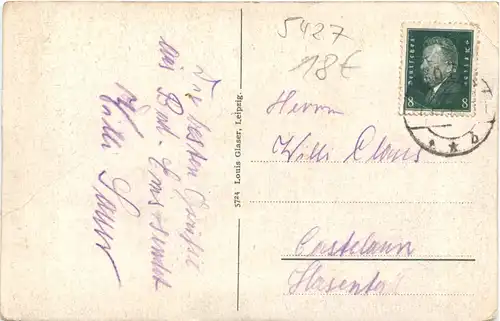 Die besten Grüße
aus Bad-Ems sendet
Willi
5724 Louis Glaser, Leipzig.
5427
18€
Deutsches Reich
8 8
Herrn
Willi Claus
Castellaun
Hasental